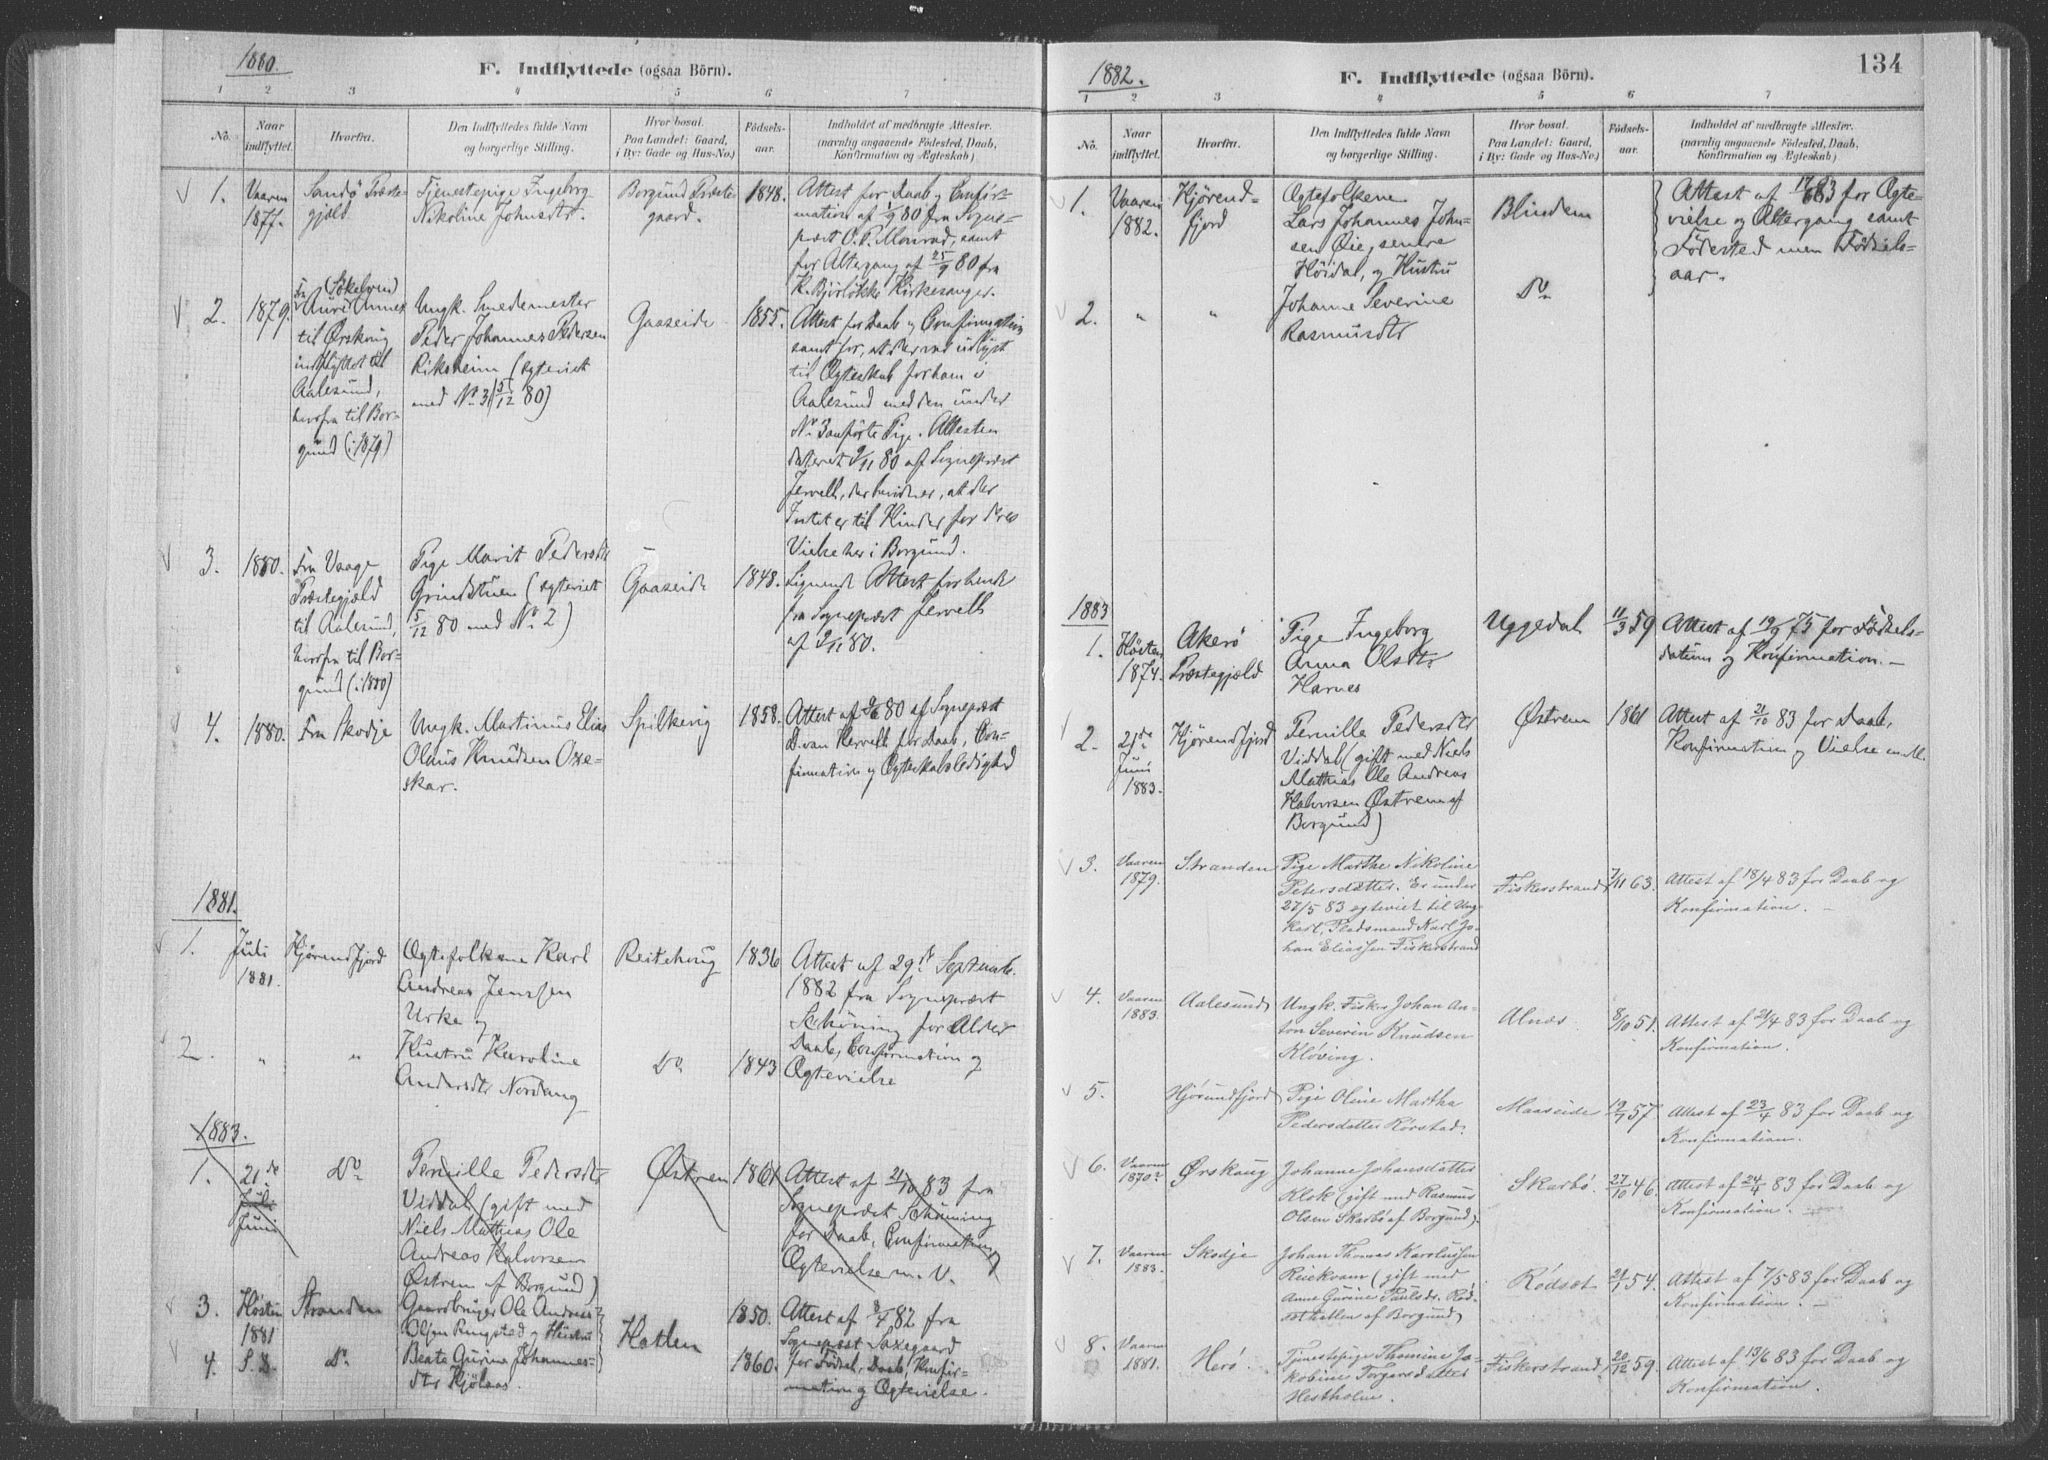 1880.
F. Indflyttede (ogsaa Börn).
1 2 3 4 5 6 7
No.
Naar
indflyttet.
Hvorfra.
Den Indflyttedes fulde Navn
og borgerlige Stilling.
Hvor bosat.
Paa Landet: Gaard,
i By: Gade og Hus-No.)
Födsels-
aar.
Indholdet af medbragte Attester.
(navnlig angaaende Födested, Daab,
Konfirmation og Ægteskab)
1.
Vaaren
1877.
Sandø Præste-
gjæld
Tjenestepige Ingeborg
Nikoline Johnsdtr.
Borgund Præste-
gaard.
1848.
Attest for Daab og Confir-
mation af 80 fra Sogne-
præst O. P. Monrad, samt
for Altergang af 25/9 80 fra
K. Bjørløkke Kirkesanger.
2.
1879.
Fra (Søkelven)
Aure Annex
til Ørskoug
indflyttet til
Aalesund,
hvorfra til Bor-
gund (i 1879)
Ungk. Smedemester
Peder Johannes Pedersen
Riksheim (egteviet
med No 3 5/12 80)
Gaaseide
1855.
Attest for Daab og Confirmation
samt for, at der var udlyst
til Ægteskab for ham i
Aalesund med den under
No 3 anførte Pige. Attesten
dateret 9/11 80 af Sognepræst
Jervell, der bevidner, at der
Intet er til Hinder for deres
Vielse her i Borgund.
3.
1880.
Fra Vaage
Præstegjæld
til Aalesund,
hvorfra til Bor-
gund (i 1880)
Pige Marit Pedersdtr
Grindstuen (egteviet
5/12 80 med No 2)
Gaaseide
1848.
Lignende Attest for hende
fra Sognepræst Jervell
af 9/11 80.
4.
1880.
Fra Skodje
Ungk. Martinus Elias
Olaus Knudsen Oxe-
skar.
Spilkevig
1858.
Attest af 80 af Sognepræst
D. van Kervell for Daab, Con-
firmation og Ægteskabsledighed
1881.
1.
Juli
1881.
Hjørendfjord
Ægtefolkene Karl
Andreas Jenssen
Urke og
Reitehoug
1836
Attest af 29de Septemb.
1882 fra Sognepræst
Schöning for Alder
Daab, Confirmation og
Ægtevielse
2.
"
"
Hustru Karoline
Andersdtr Nordang
Do
1843
1883.
1.
21de
Juli
Juni
Do
Pernille Pedersdtr
Viddal (gift med
Niels Mathias Ole
Andreas Halvorsen
Østrem af Borgund)
Østrem
1861
Attest af 21/10 83 fra
Sognepræst Schöning
for Daab, Confirmation,
Ægtevielse m. V.
3.
Høsten
1881
Stranden
Gaardbruger Ole Andreas
Olsen Ringstad og Hustru
Hatlen
1850.
Attest af 82 fra
Sognepræst Saxegaard
for Födsel, Daab, Konfir-
mation og Ægtevielse.
4.
S. D.
Do
Beate Gurine Johannes-
dtr Hjølaas.
1860.
134
1882.
F. Indflyttede (ogsaa Börn).
1 2 3 4 5 6 7
No.
Naar
indflyttet.
Hvorfra.
Den Indflyttedes fulde Navn
og borgerlige Stilling.
Hvor bosat.
Paa Landet: Gaard,
i By: Gade og Hus-No.)
Födsels-
aar.
Indholdet af medbragte Attester.
(navnlig angaaende Födested, Daab,
Konfirmation og Ægteskab)
1.
Vaaren
1882.
Hjörend-
fjord
Ægtefolkene
Lars Johannes John-
sen Öie, senere
Höidal, og Hustru
Blindem
Attest af 83 for Ægte-
vielse og Altergang samt
Födested men Födsels-
aar.
2.
"
"
Johanne Severine
Rasmusdtr
Do
1883
1.
Høsten
1874.
Akerö
Præstegjæld
Pige Ingeborg
Anna Olsdtr
Harnes
Uggedal
11/3 59
Attest af 19/9 75 for Födsels-
datum og Konfirmation. —
2.
21de
Juni
1883.
Hjörendfjord
Pernille Pedersdtr
Viddal (gift med Niels
Mathias Ole Andreas
Halvorsen Østrem af
Borgund)
Østrem
1861
Attest af 21/10 83 for Daab,
Konfirmation og Vielse m. M.
3.
Vaaren
1879.
Stranden
Pige Marthe Nikoline
Petersdatter. Er under
27/5 83 egteviet til Ung-
karl, Pladsmand Karl Jo-
han Eliassen Fiskerstrand
Fiskerstrand
7/11 63.
Attest af 18/4 83 for Daab og
Konfirmation. —
4.
Vaaren
1883.
Aalesund
Ungk. Fisker Johan An-
ton Severin Knudsen
Kløving.
Alnæs.
8/10 51.
Attest af 21/4 83 for Daab og
Konfirmation.
5.
Hjörundfjord
Pige Oline Martha
Pedersdatter Rörstad.
Maaseide
19/1 57
Attest af 23/4 83 for Daab og
Konfirmation.
6.
Vaaren
1870?
Ørskoug
Johanne Johansdatter
Klok (gift med Rasmus
Olsen Skarbö af Borgund).
Skarbö.
27/10 46.
Attest af 24/4 83 for Daab og
Konfirmation.
7.
Vaaren
1883.
Skodje
Johan Thomas Karolussen
Reiekvam (gift med
Anne Gurine Paulsdr. Röd-
sethatlen af Borgund)
Rödsæt
21/1 54.
Attest af 7/5 83 for Daab og
Konfirmation. —
8.
Vaaren
1881.
Herö.
Tjenestepige Thomine Ja-
kobine Torgersdatter
Hestholm.
Fiskerstrand
20/12 59.
Attest af 13/6 83 for Daab og
Konfirmation.